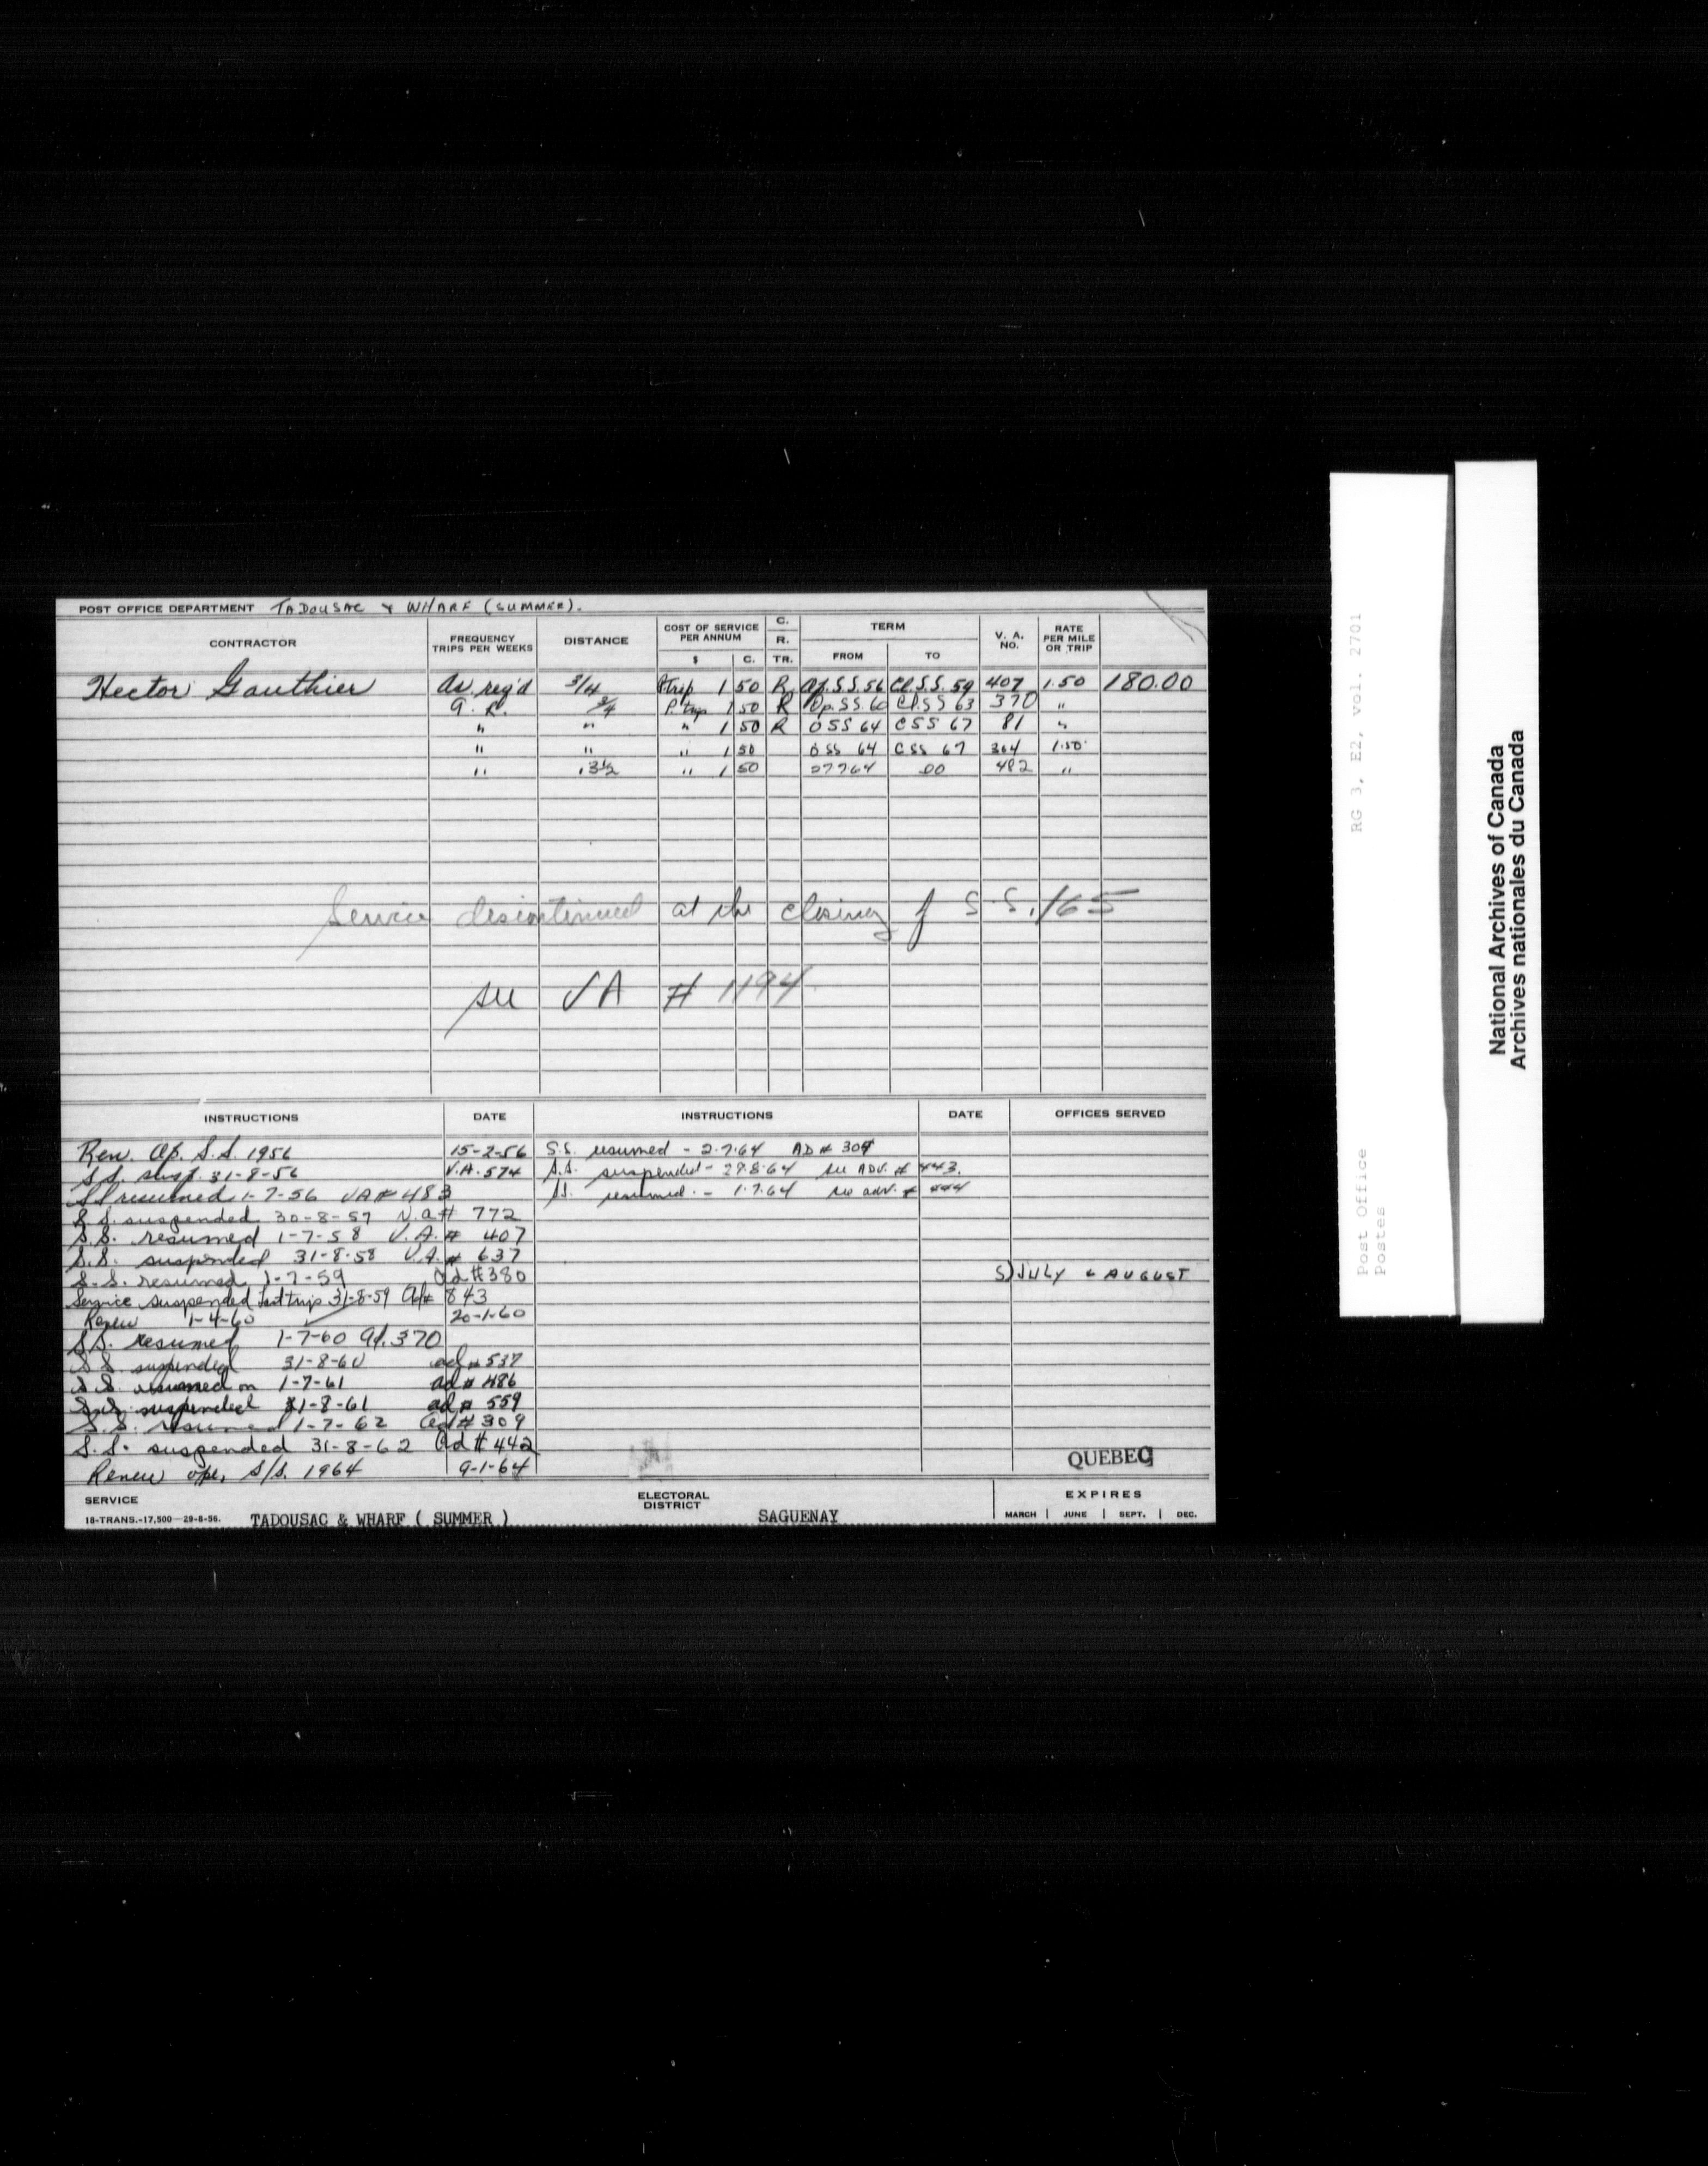 POST OFFICE DEPARTMENT TADOUSAC & WHARF (SUMMER).
CONTRACTOR FREQUENCY TRIPS PER WEEKS DISTANCE COST OF SERVICE PER ANNUM $ C. C. R. TR. TERM FROM TO V. A. NO. RATE PER MILE OR TRIP
Hector Gauthier As req'd 3/4 P trip 1 50 R Op. S.S. 56 Cl. S.S. 59 407 1.50 180.00
a. r. 3/4 P. trip 1 50 R Op. SS 60 Cl. SS 63 370 "
" " " 1 50 R O SS 64 C SS 67 81 "
" " " 1 50 O SS 64 C SS 67 304 1.50
" .3½ " 1 50 27764 DO 482 "
Service discontinued at the closing of S.S./65
see VA # 1194
INSTRUCTIONS DATE INSTRUCTIONS DATE OFFICES SERVED
Ren. Op. S.S. 1956 15-2-56 S.S. resumed - 2.7.64 AD # 304
S.S. susp. 31-8-56 V.A. 574 S.S. suspended - 29.8.64 see ADV. # 443.
SS resumed 1-7-56 VA # 483 SS. resumed. - 1.7.64 see adv. # 444
S.S. suspended 30-8-57 V.a # 772
S.S. resumed 1-7-58 V.A. # 407
S.S. suspended 31-8-58 V.A. # 637
S.S. resumed 1-7-59 Ad # 380 S) JULY & AUGUST
Service suspended last trip 31-8-59 Ad # 843
Renew 1-4-60 20-1-60
S.S. resumed 1-7-60 Ad. 370
S.S. suspended 31-8-60 ad # 537
S.S. resumed on 1-7-61 ad # 486
S.S. suspended 31-8-61 ad # 559
S.S. resumed 1-7-62 Ad # 309
S.S. suspended 31-8-62 Ad # 442
Renew ope. S/S. 1964 9-1-64
QUEBEC
SERVICE TADOUSAC & WHARF ( SUMMER ) ELECTORAL DISTRICT SAGUENAY EXPIRES
18-TRANS.-17,500-29-8-56. MARCH | JUNE | SEPT. | DEC.
Post Office RG 3, E2, vol. 2701
Postes
National Archives of Canada
Archives nationales du Canada